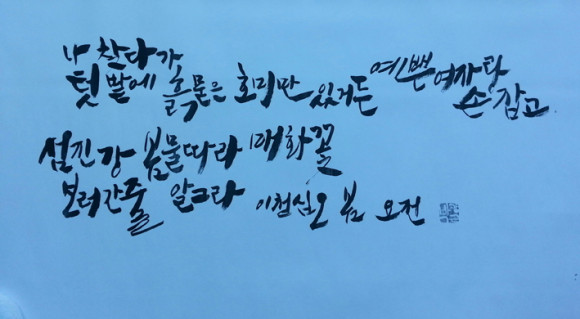 나 찾다가
텃밭에 흙묻은 호미만 있거든 예쁜 여자랑 손잡고
섬진강 봄물따라 매화꽃
보러간줄 알그라 이천십오 봄